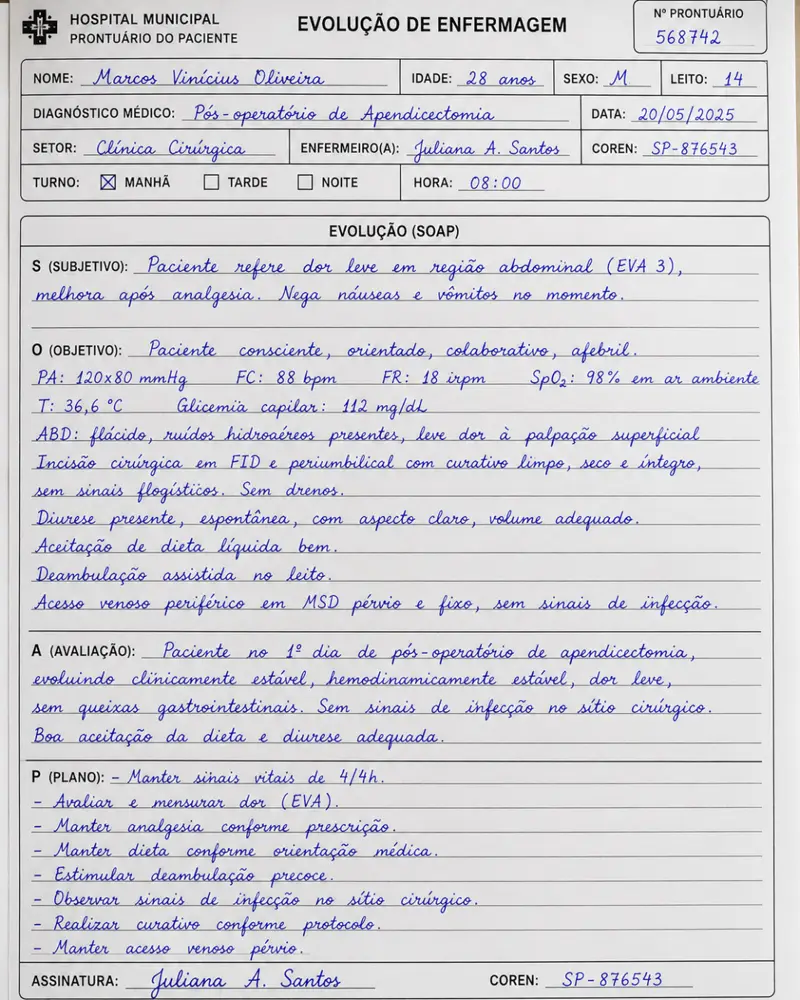 HOSPITAL MUNICIPAL
PRONTUÁRIO DO PACIENTE
EVOLUÇÃO DE ENFERMAGEM
Nº PRONTUÁRIO
568742
NOME: Marcos Vinícius Oliveira IDADE: 28 anos SEXO: M LEITO: 14
DIAGNÓSTICO MÉDICO: Pós-operatório de Apendicectomia DATA: 20/05/2025
SETOR: Clínica Cirúrgica ENFERMEIRO(A): Juliana A. Santos COREN: SP-876543
TURNO: ☒ MANHÃ ☐ TARDE ☐ NOITE HORA: 08:00
EVOLUÇÃO (SOAP)
S (SUBJETIVO): Paciente refere dor leve em região abdominal (EVA 3),
melhora após analgesia. Nega náuseas e vômitos no momento.
O (OBJETIVO): Paciente consciente, orientado, colaborativo, afebril.
PA: 120x80 mmHg FC: 88 bpm FR: 18 irpm SpO₂: 98% em ar ambiente
T: 36,6 °C Glicemia capilar: 112 mg/dL
ABD: flácido, ruídos hidroaéreos presentes, leve dor à palpação superficial
Incisão cirúrgica em FID e periumbilical com curativo limpo, seco e íntegro,
sem sinais flogísticos. Sem drenos.
Diurese presente, espontânea, com aspecto claro, volume adequado.
Aceitação de dieta líquida bem.
Deambulação assistida no leito.
Acesso venoso periférico em MSD pérvio e fixo, sem sinais de infecção.
A (AVALIAÇÃO): Paciente no 1º dia de pós-operatório de apendicectomia,
evoluindo clinicamente estável, hemodinamicamente estável, dor leve,
sem queixas gastrointestinais. Sem sinais de infecção no sítio cirúrgico.
Boa aceitação da dieta e diurese adequada.
P (PLANO): - Manter sinais vitais de 4/4h.
- Avaliar e mensurar dor (EVA).
- Manter analgesia conforme prescrição.
- Manter dieta conforme orientação médica.
- Estimular deambulação precoce.
- Observar sinais de infecção no sítio cirúrgico.
- Realizar curativo conforme protocolo.
- Manter acesso venoso pérvio.
ASSINATURA: Juliana A. Santos COREN: SP-876543